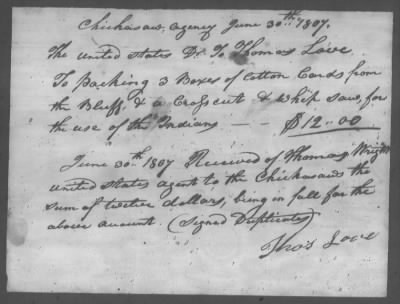 Chickasaw agency June 30th 1807.
The united States Dr To Thomas Love
To packing 3 Boxes of Cotton Cards from
the Bluff, & a Crosscut & whip saw, for
the use of the Indians — — $12.00
June 30th 1807 Received of Thomas Wright
united states agent to the Chickasaws the
sum of twelve dollars, being in full for the
above amount. (Signed Duplicate)
Tho's Love